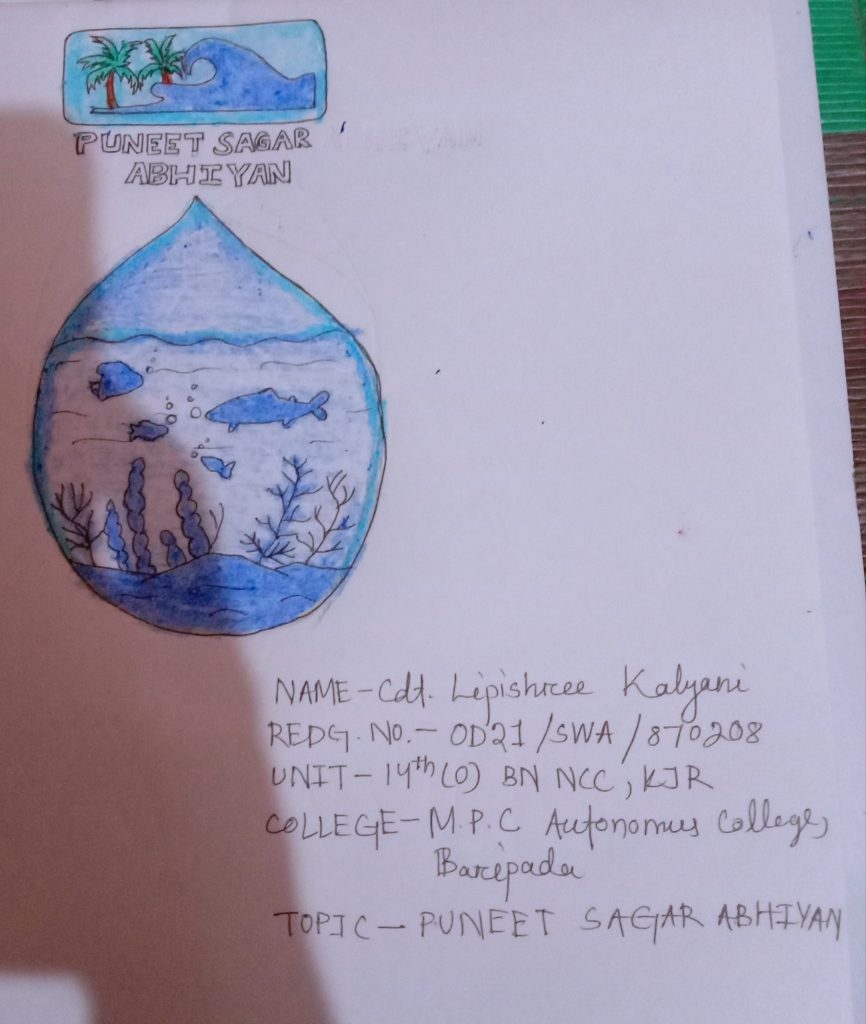 PUNEET SAGAR
ABHIYAN
NAME-Cdt. Lipishree Kalyani
REDG. NO.- OD21/SWA/870208
UNIT-14th(O) BN NCC, KJR
COLLEGE-M.P.C Autonomus College,
Baripada
TOPIC- PUNEET SAGAR ABHIYAN